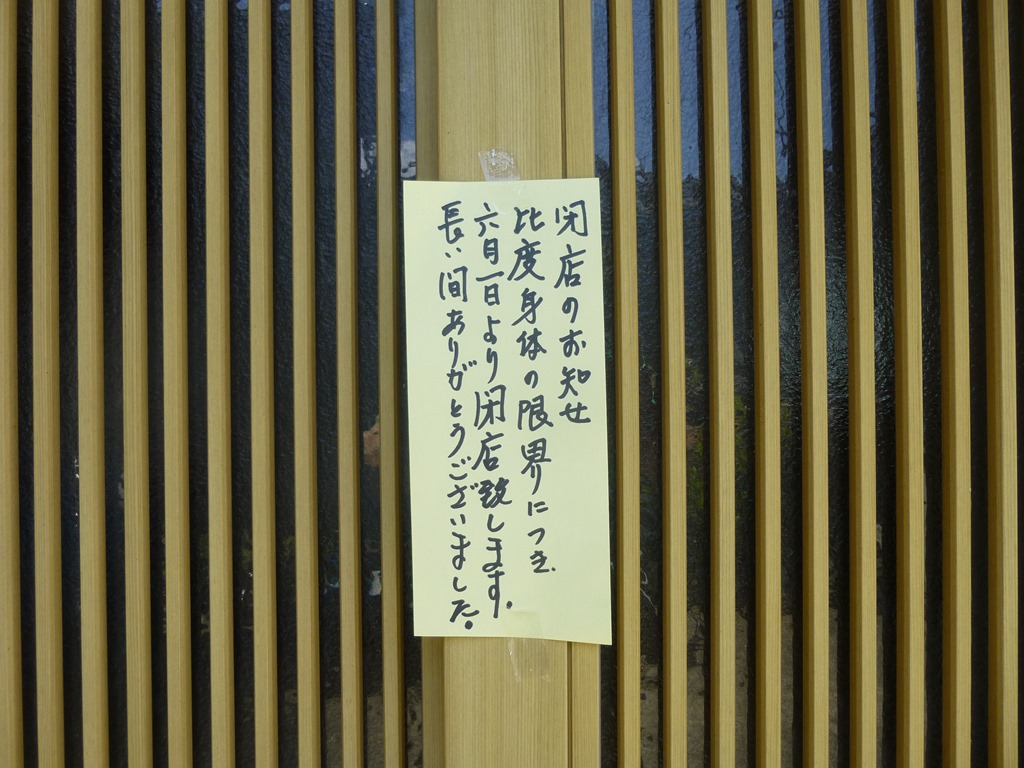 閉店のお知せ
比度身体の限界につき、
六月一日より閉店致します。
長い間ありがとうございました。